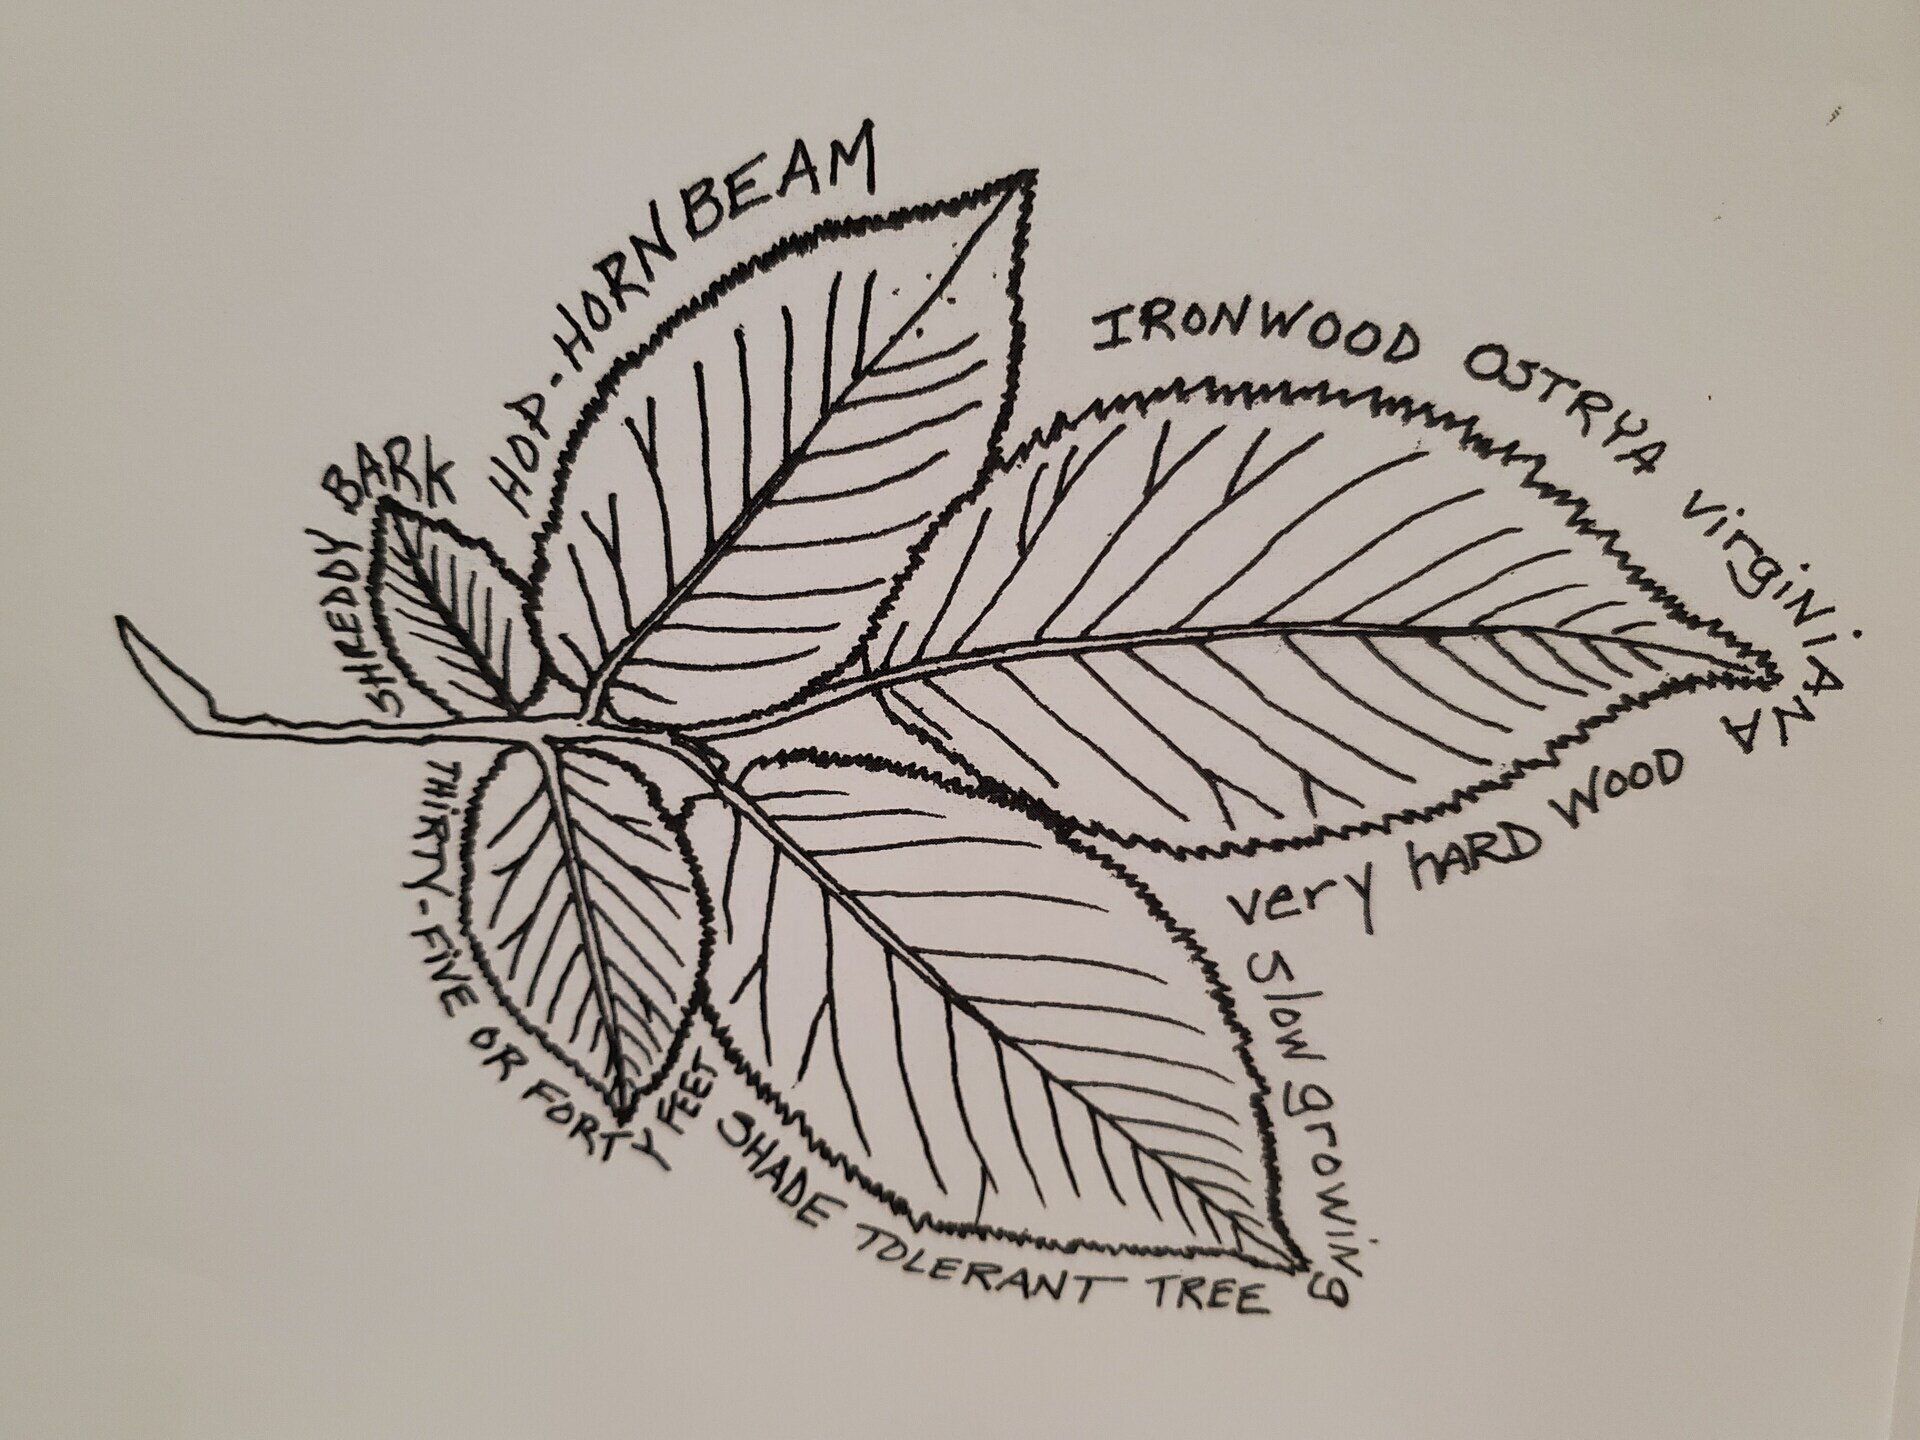 SHREDDY BARK
HOP-HORNBEAM
IRONWOOD OSTRYA virgiNiANA
very hARD WOOD
slow growiNg
SHADE TOLERANT TREE
THiRTY-FiVE OR FORTY FEET